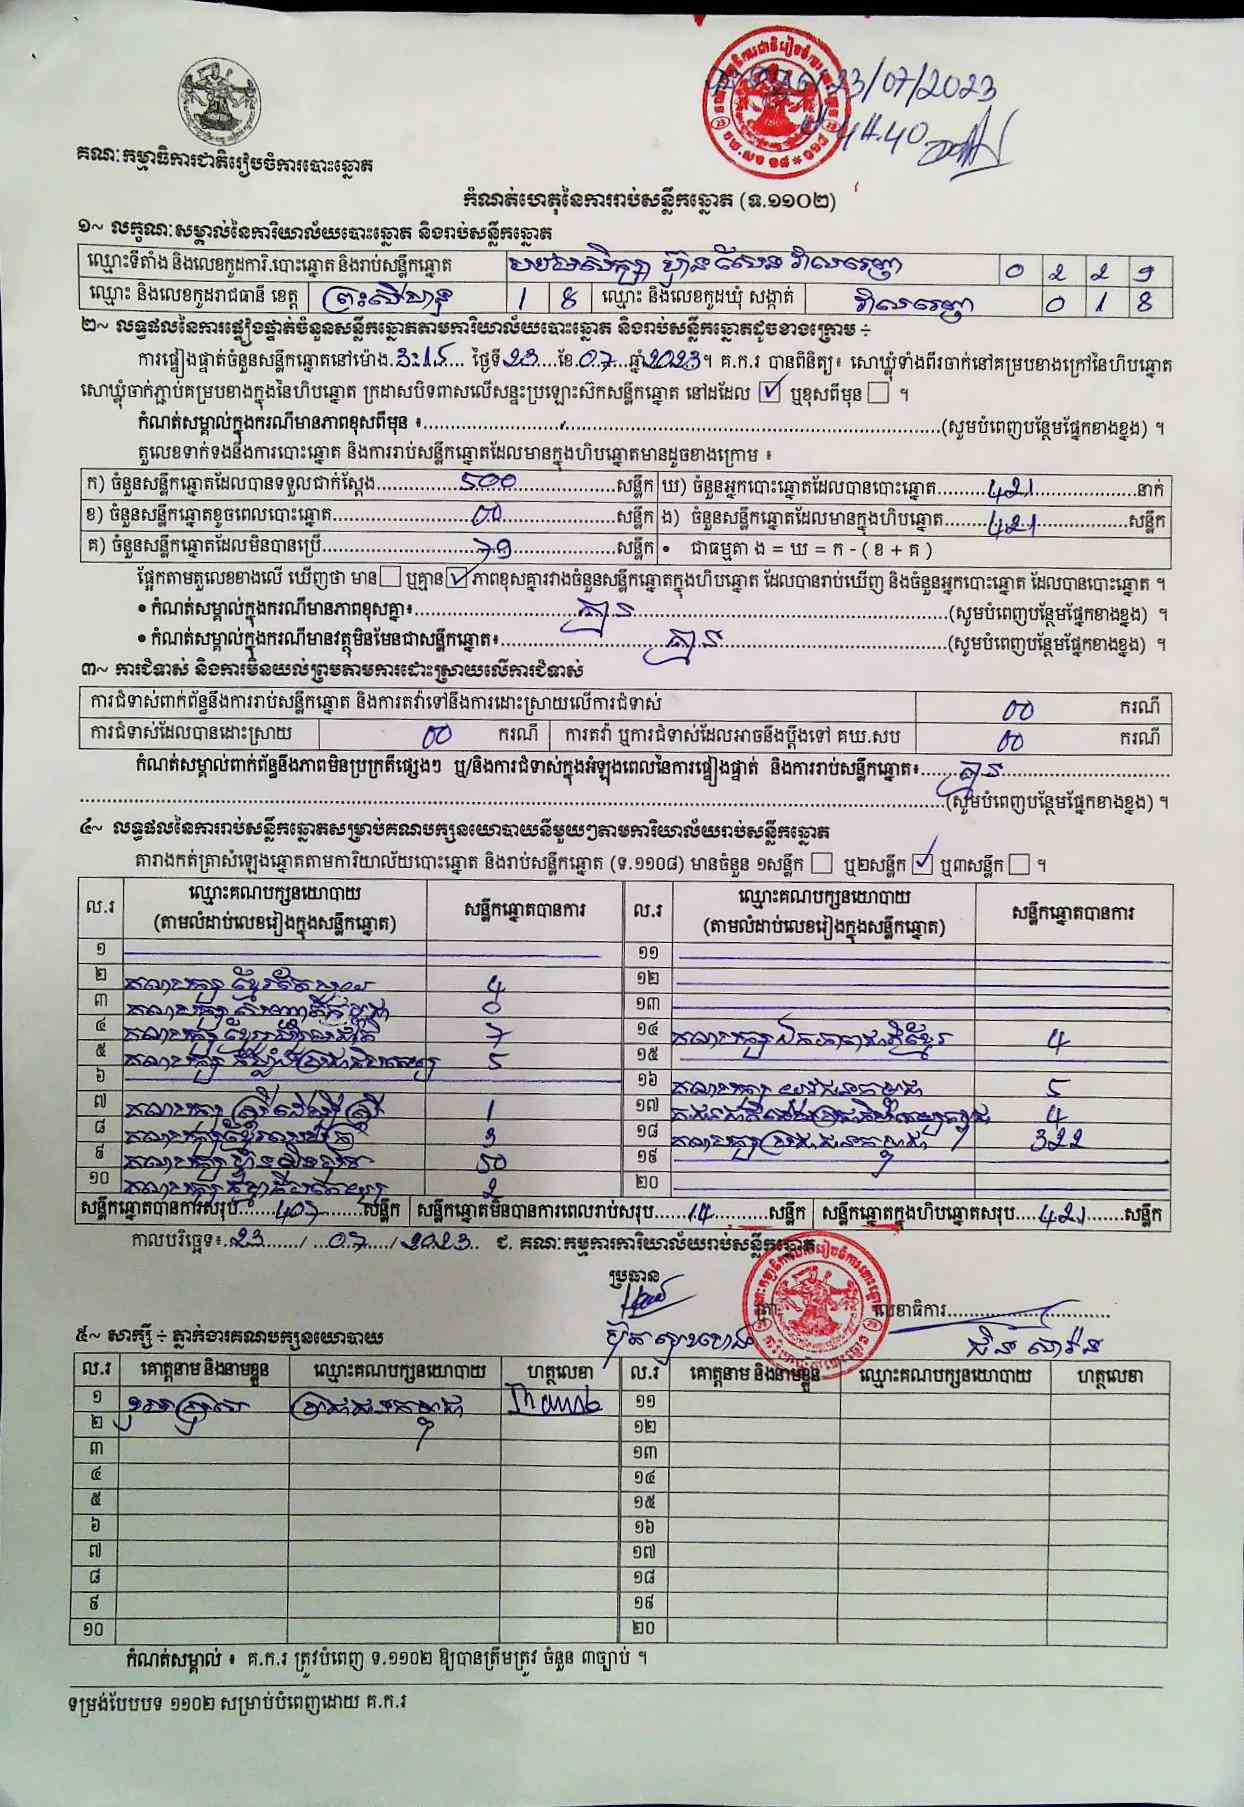 23/07/2023
4H.40
គណៈកម្មាធិការជាតិរៀបចំការបោះឆ្នោត
កំណត់ហេតុនៃការរាប់សន្លឹកឆ្នោត (ទ.១១០២)
១~ លក្ខណៈសម្គាល់នៃការិយាល័យបោះឆ្នោត និងរាប់សន្លឹកឆ្នោត
ឈ្មោះទីតាំង និងលេខកូដការិ.បោះឆ្នោត និងរាប់សន្លឹកឆ្នោត ហ៊ុន សែន វាលរេញ 0 2 2 9
ឈ្មោះ និងលេខកូដរាជធានី ខេត្ត ព្រះសីហនុ 1 8 ឈ្មោះ និងលេខកូដឃុំ សង្កាត់ វាលរេញ 0 1 8
២~ លទ្ធផលនៃការផ្ទៀងផ្ទាត់ចំនួនសន្លឹកឆ្នោតតាមការិយាល័យបោះឆ្នោត និងរាប់សន្លឹកឆ្នោតដូចខាងក្រោម ÷
ការផ្ទៀងផ្ទាត់ចំនួនសន្លឹកឆ្នោតនៅម៉ោង.3:15... ថ្ងៃទី23....ខែ.07...ឆ្នាំ2023។ គ.ក.រ បានពិនិត្យ៖ សោឃ្លុំទាំងពីរចាក់នៅគម្របខាងក្រៅនៃហិបឆ្នោត
សោឃ្លុំចាក់ភ្ជាប់គម្របខាងក្នុងនៃហិបឆ្នោត ក្រដាសបិទពាសលើសន្ទះប្រឡោះស៊កសន្លឹកឆ្នោត នៅដដែល ☑ ឬខុសពីមុន ☐ ។
កំណត់សម្គាល់ក្នុងករណីមានភាពខុសពីមុន ៖..........(សូមបំពេញបន្ថែមផ្នែកខាងខ្នង) ។
តួលេខទាក់ទងនឹងការបោះឆ្នោត និងការរាប់សន្លឹកឆ្នោតដែលមានក្នុងហិបឆ្នោតមានដូចខាងក្រោម ៖
ក) ចំនួនសន្លឹកឆ្នោតដែលបានទទួលជាក់ស្តែង.....500.....សន្លឹក ឃ) ចំនួនអ្នកបោះឆ្នោតដែលបានបោះឆ្នោត.....421.....នាក់
ខ) ចំនួនសន្លឹកឆ្នោតខូចពេលបោះឆ្នោត.....00.....សន្លឹក ង) ចំនួនសន្លឹកឆ្នោតដែលមានក្នុងហិបឆ្នោត.....421.....សន្លឹក
គ) ចំនួនសន្លឹកឆ្នោតដែលមិនបានប្រើ.....79.....សន្លឹក • ជាធម្មតា ង = ឃ = ក - ( ខ + គ )
ផ្អែកតាមតួលេខខាងលើ ឃើញថា មាន ☐ ឬគ្មាន ☑ ភាពខុសគ្នារវាងចំនួនសន្លឹកឆ្នោតក្នុងហិបឆ្នោត ដែលបានរាប់ឃើញ និងចំនួនអ្នកបោះឆ្នោត ដែលបានបោះឆ្នោត ។
• កំណត់សម្គាល់ក្នុងករណីមានភាពខុសគ្នា៖.....គ្មាន.....(សូមបំពេញបន្ថែមផ្នែកខាងខ្នង) ។
• កំណត់សម្គាល់ក្នុងករណីមានវត្ថុមិនមែនជាសន្លឹកឆ្នោត៖.....គ្មាន.....(សូមបំពេញបន្ថែមផ្នែកខាងខ្នង) ។
៣~ ការជំទាស់ និងការមិនយល់ព្រមតាមការដោះស្រាយលើការជំទាស់
ការជំទាស់ពាក់ព័ន្ធនឹងការរាប់សន្លឹកឆ្នោត និងការតវ៉ាទៅនឹងការដោះស្រាយលើការជំទាស់ 00 ករណី
ការជំទាស់ដែលបានដោះស្រាយ 00 ករណី ការតវ៉ា ឬការជំទាស់ដែលអាចនឹងប្តឹងទៅ គឃ.សប 00 ករណី
កំណត់សម្គាល់ពាក់ព័ន្ធនឹងភាពមិនប្រក្រតីផ្សេងៗ ឬ/និងការជំទាស់ក្នុងអំឡុងពេលនៃការផ្ទៀងផ្ទាត់ និងការរាប់សន្លឹកឆ្នោត៖.....គ្មាន.....
..........(សូមបំពេញបន្ថែមផ្នែកខាងខ្នង) ។
៤~ លទ្ធផលនៃការរាប់សន្លឹកឆ្នោតសម្រាប់គណបក្សនយោបាយនីមួយៗតាមការិយាល័យរាប់សន្លឹកឆ្នោត
តារាងកត់ត្រាសំឡេងឆ្នោតតាមការិយាល័យបោះឆ្នោត និងរាប់សន្លឹកឆ្នោត (ទ.១១០៨) មានចំនួន ១សន្លឹក ☐ ឬ២សន្លឹក ☑ ឬ៣សន្លឹក ☐ ។
ល.រ ឈ្មោះគណបក្សនយោបាយ (តាមលំដាប់លេខរៀងក្នុងសន្លឹកឆ្នោត) សន្លឹកឆ្នោតបានការ ល.រ ឈ្មោះគណបក្សនយោបាយ (តាមលំដាប់លេខរៀងក្នុងសន្លឹកឆ្នោត) សន្លឹកឆ្នោតបានការ
១ ១១
២ គណបក្ស ខ្មែររីករាយ 4 ១២
៣ គណបក្ស 0 ១៣
៤ គណបក្ស ខ្មែរ 7 ១៤ គណបក្សឯកភាពជាតិខ្មែរ 4
៥ គណបក្ស កម្លាំងប្រជាធិបតេយ្យ 5 ១៥
៦ ១៦ គណបក្ស យុវជនកម្ពុជា 5
៧ គណបក្ស ស្ត្រីដើម្បីស្ត្រី 1 ១៧ 4
៨ គណបក្សខ្មែរ 3 ១៨ គណបក្សប្រជាជនកម្ពុជា 322
៩ គណបក្សហ៊្វុនស៊ិនប៉ិច 50 ១៩
១០ គណបក្ស 2 ២០
សន្លឹកឆ្នោតបានការសរុប.....407.....សន្លឹក សន្លឹកឆ្នោតមិនបានការពេលរាប់សរុប.....14.....សន្លឹក សន្លឹកឆ្នោតក្នុងហិបឆ្នោតសរុប.....421.....សន្លឹក
កាលបរិច្ឆេទ៖..23...../...07..../.2023.. ជ. គណៈកម្មការការិយាល័យរាប់សន្លឹកឆ្នោត
ប្រធាន
លេខាធិការ..........
៥~ សាក្សី ÷ ភ្នាក់ងារគណបក្សនយោបាយ
ល.រ គោត្តនាម និងនាមខ្លួន ឈ្មោះគណបក្សនយោបាយ ហត្ថលេខា ល.រ គោត្តនាម និងនាមខ្លួន ឈ្មោះគណបក្សនយោបាយ ហត្ថលេខា
១ ប្រជាជនកម្ពុជា ១១
២ ១២
៣ ១៣
៤ ១៤
៥ ១៥
៦ ១៦
៧ ១៧
៨ ១៨
៩ ១៩
១០ ២០
កំណត់សម្គាល់ ៖ គ.ក.រ ត្រូវបំពេញ ទ.១១០២ ឱ្យបានត្រឹមត្រូវ ចំនួន ៣ច្បាប់ ។
ទម្រង់បែបបទ ១១០២ សម្រាប់បំពេញដោយ គ.ក.រ